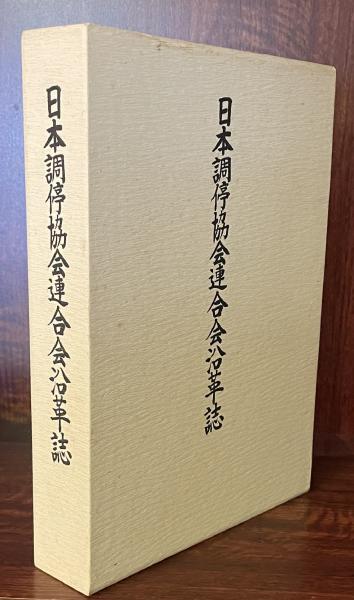 日本調停協会連合会沿革誌
日本調停協会連合会沿革誌